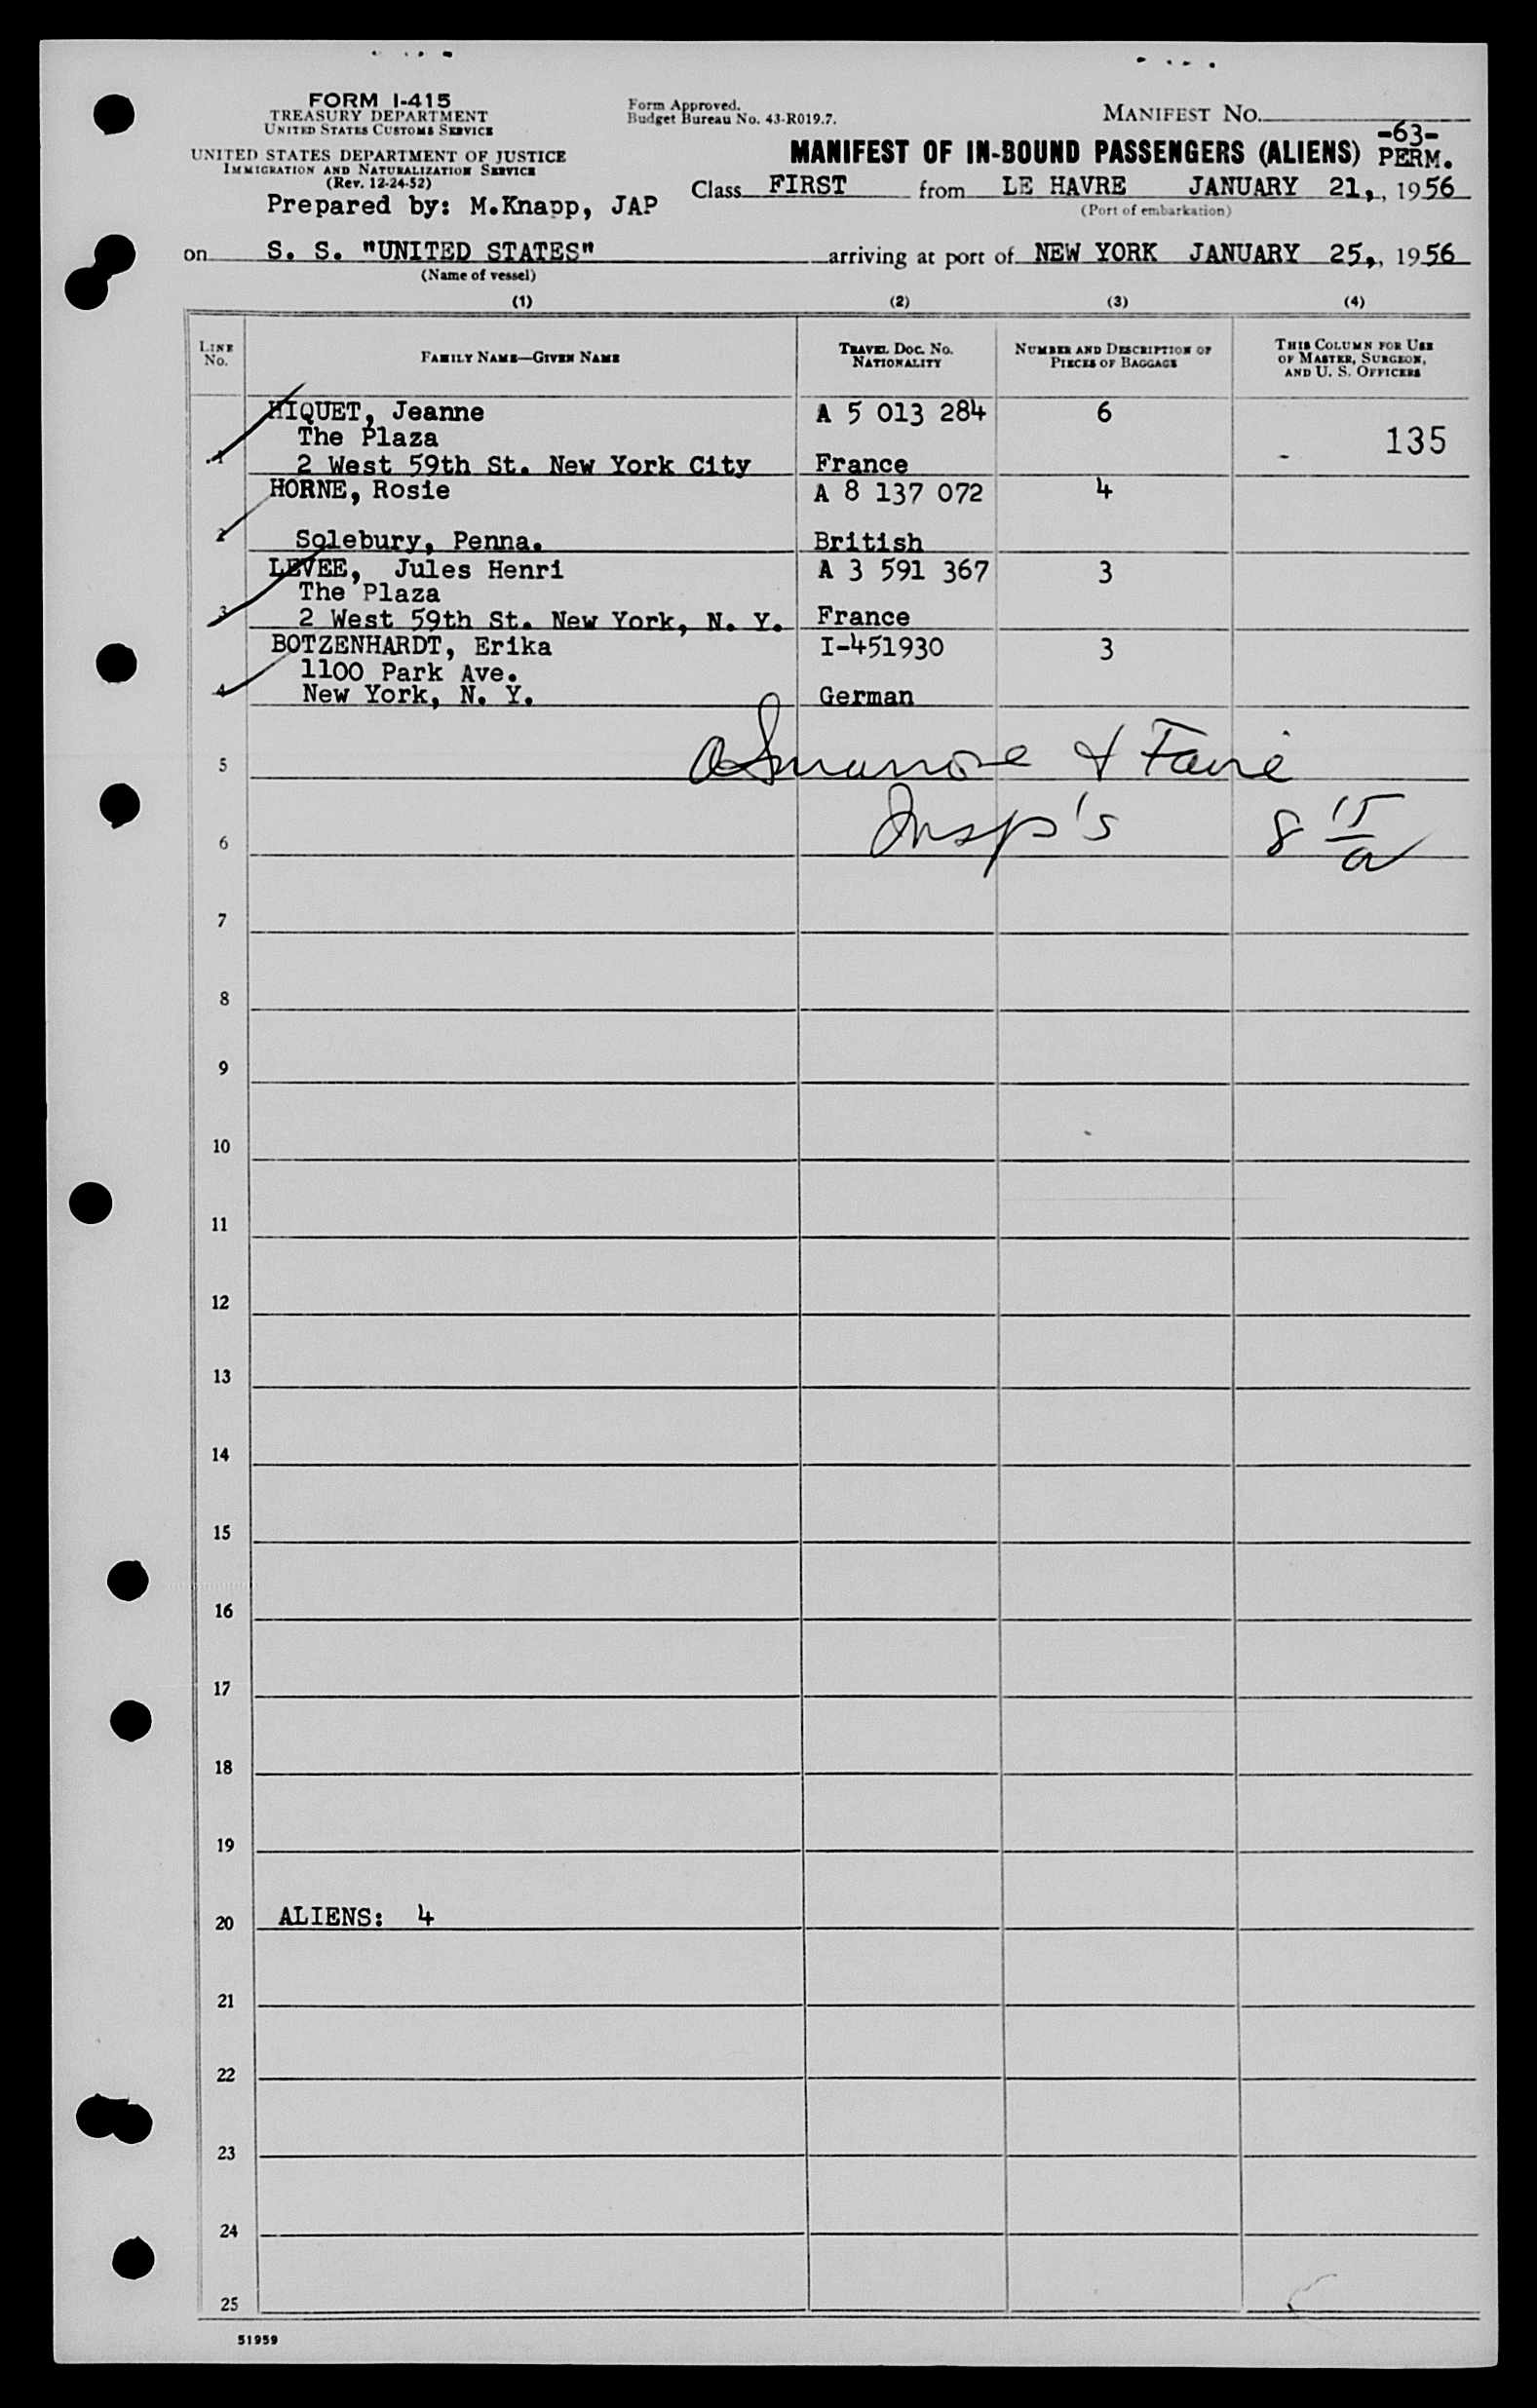 FORM I-415
TREASURY DEPARTMENT
UNITED STATES CUSTOMS SERVICE
UNITED STATES DEPARTMENT OF JUSTICE
IMMIGRATION AND NATURALIZATION SERVICE
(Rev. 12-24-52)
Prepared by: M.Knapp, JAP
Form Approved.
Budget Bureau No. 43-R019.7.
MANIFEST NO.
-63-
MANIFEST OF IN-BOUND PASSENGERS (ALIENS) PERM.
Class FIRST from LE HAVRE JANUARY 21,, 1956
(Port of embarkation)
on S. S. "UNITED STATES" arriving at port of NEW YORK JANUARY 25,, 1956
(Name of vessel)
(1) (2) (3) (4)
LINE No.
FAMILY NAME—GIVEN NAME
TRAVEL DOC. NO. NATIONALITY
NUMBER AND DESCRIPTION OF PIECES OF BAGGAGE
THIS COLUMN FOR USE OF MASTER, SURGEON, AND U. S. OFFICERS
HIQUET, Jeanne A 5 013 284 6
The Plaza 135
1 2 West 59th St. New York City France
HORNE, Rosie A 8 137 072 4
2 Solebury, Penna. British
LEVEE, Jules Henri A 3 591 367 3
The Plaza
3 2 West 59th St. New York, N. Y. France
BOTZENHARDT, Erika I-451930 3
1100 Park Ave.
4 New York, N. Y. German
5
6 Insp's 8 15/a
7
8
9
10
11
12
13
14
15
16
17
18
19
20 ALIENS: 4
21
22
23
24
25
51959